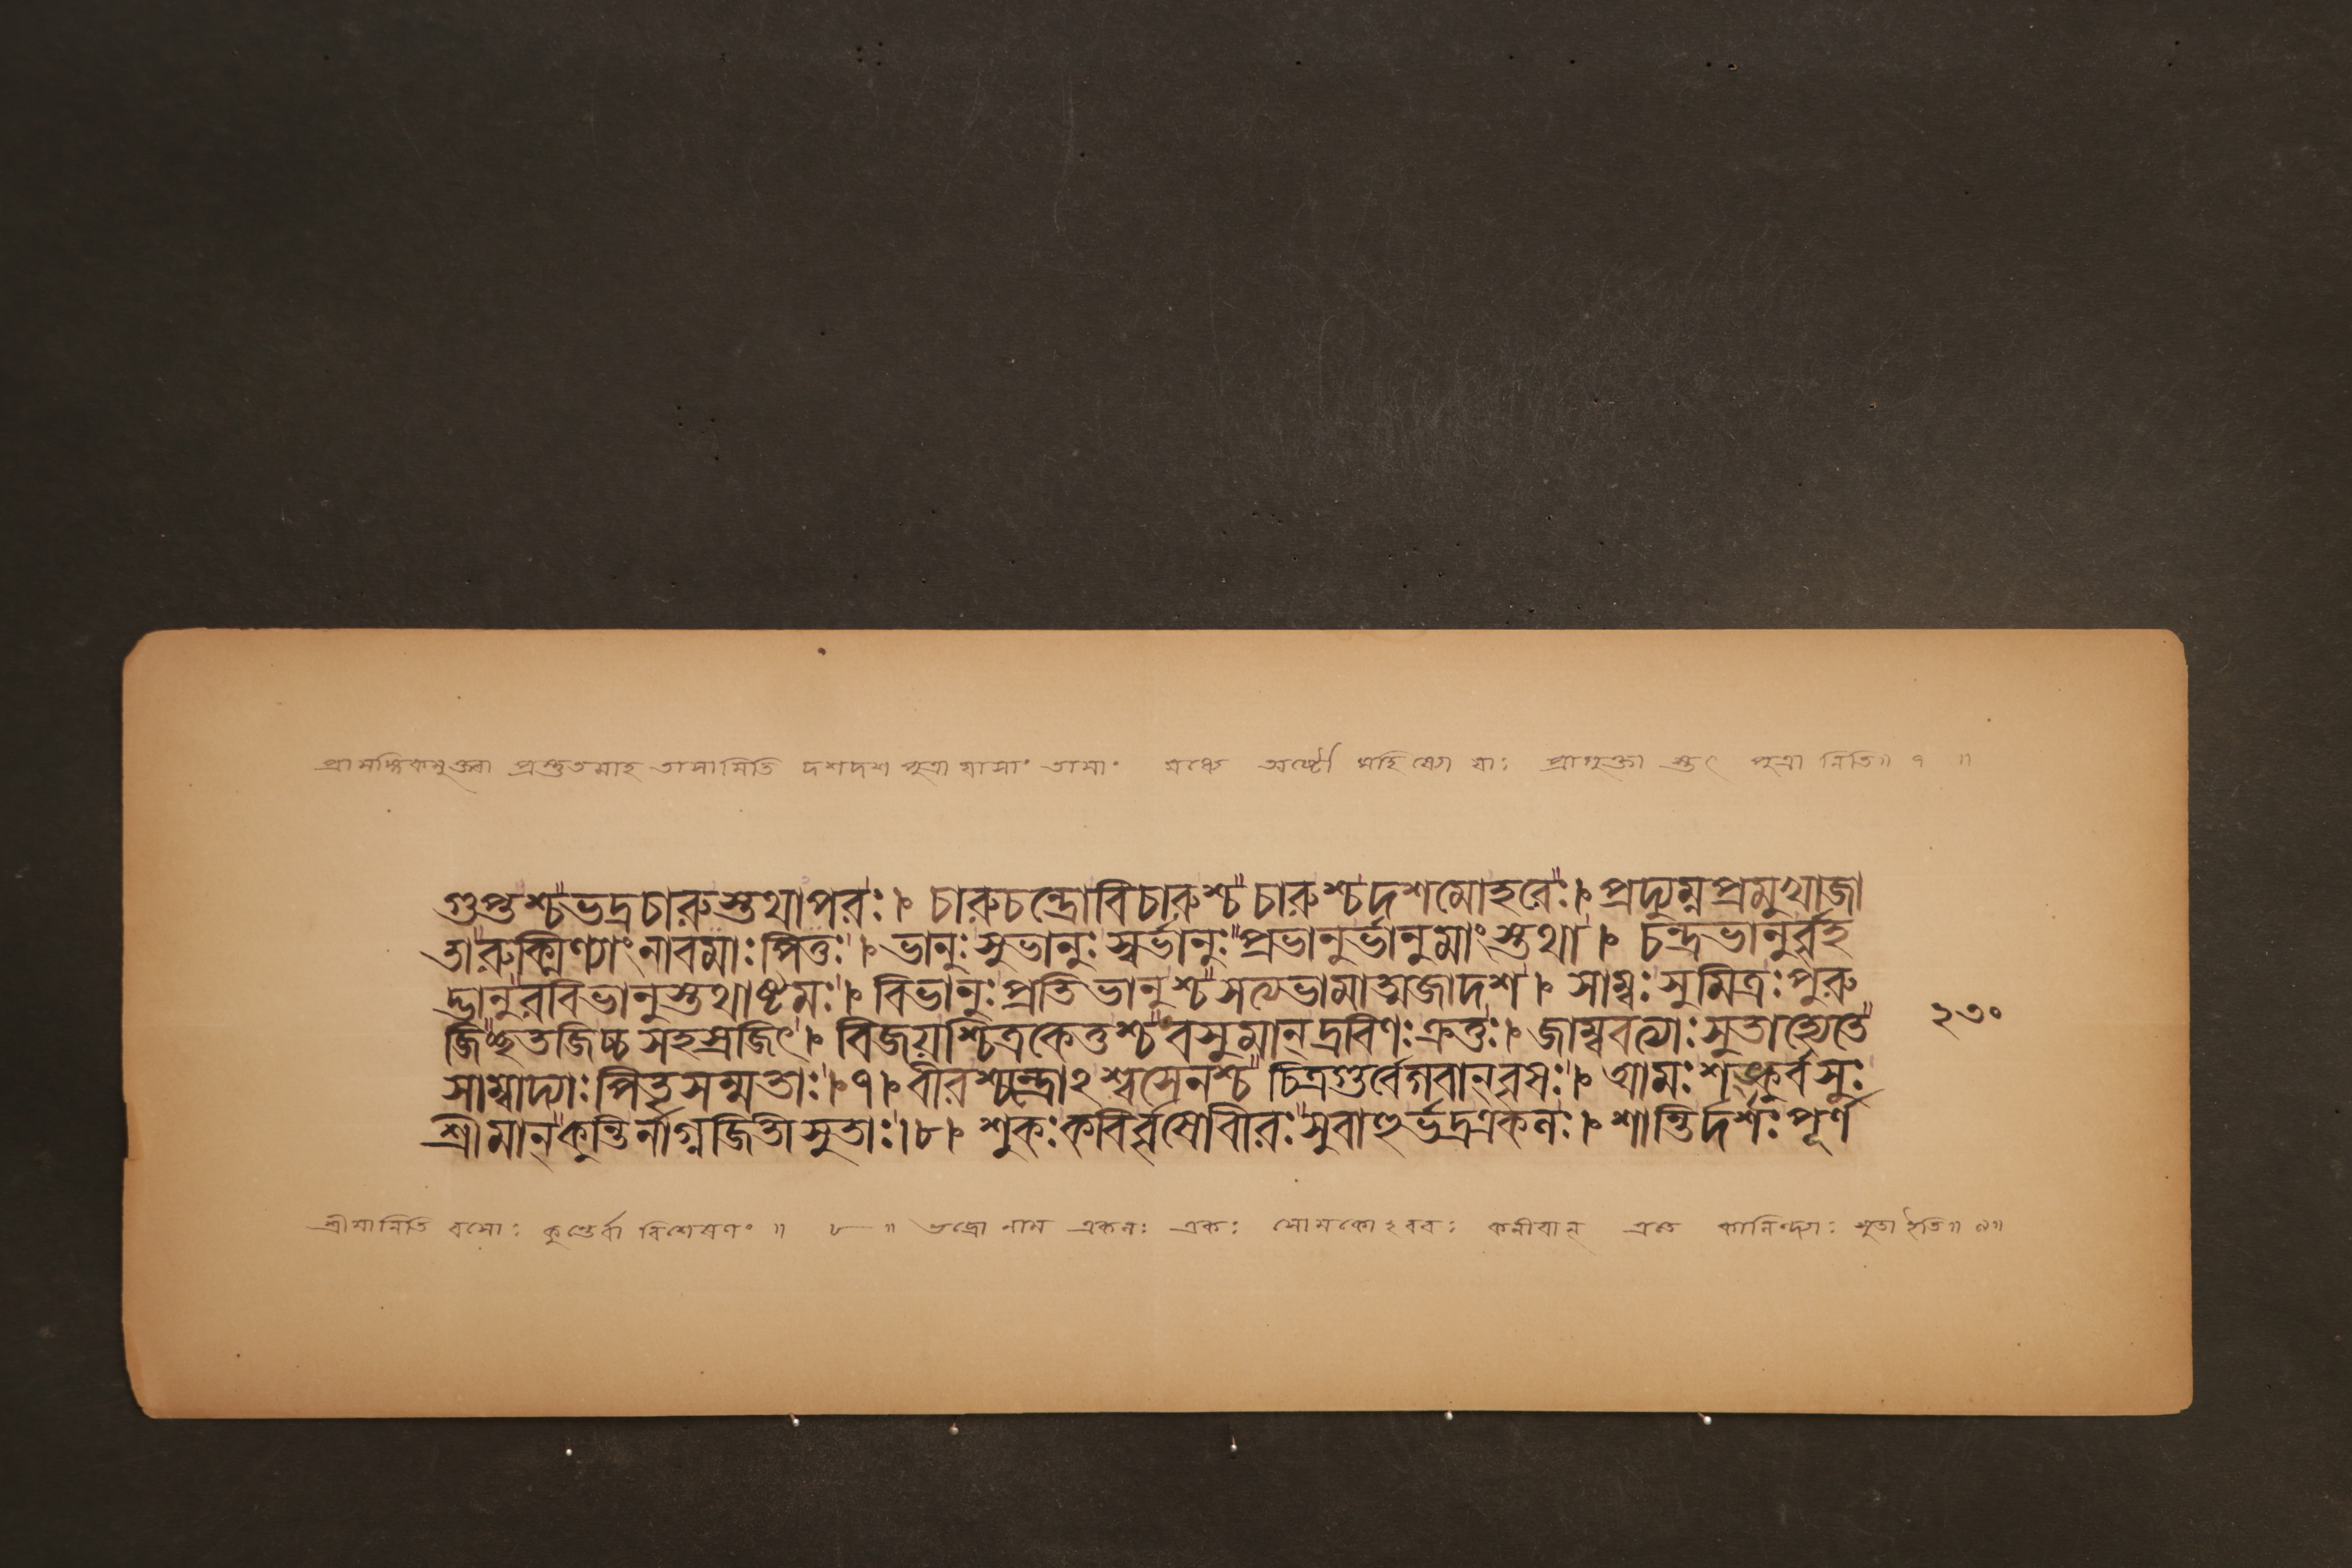 প্রাসঙ্গিকমুক্ত্বা প্রস্তুতমাহ তাসামিতি দশদশ পুত্রা যাসাং তাসাং মধ্যে অষ্টৌ মহিষ্যো যাঃ প্রাগুক্তা স্তৎ পুত্রা নিতি॥ ৭ ॥
গুপ্তশ্চ"ভদ্রচারুস্তথাপরঃ।৮ চারুচন্দ্রোবিচারুশ্চ"চারুশ্চদশমোহরেঃ।৮ প্রদ্যুম্নপ্রমুখাজা
তা"রুক্মিণ্যাংনাবমাঃপিতুঃ।৮ ভানুঃসুভানুঃস্বর্ভানুঃ"প্রভানুর্ভানুমাংস্তথা।৮ চন্দ্রভানুর্ব্বৃহ
দ্ভানু"রবিভানুস্তথাষ্টমঃ।৮ বিভানুঃপ্রতিভানুশ্চ"সত্যভামাত্মজাদশ।৮ সাম্বঃসুমিত্রঃপুরু
জি"চ্ছতজিচ্চসহস্রজিৎ।৮ বিজয়শ্চিত্রকেতুশ্চ"বসুমান্দ্রবিণঃক্রতুঃ।৮ জাম্ববত্যাঃসুতাহ্যেতে"
সাম্বাদ্যাঃপিতৃসম্মতাঃ।৮৭।৮ বীরশ্চন্দ্রোঽশ্বসেনশ্চ"চিত্রগুর্বেগবান্বৃষঃ।৮ আমঃশঙ্কুর্বসুঃ
শ্রীমান্"কুন্তির্নাগ্নজিতীসুতাঃ।৮।৮ শুকঃকবির্ব্বৃষোবীরঃ"সুবাহুর্ভদ্রএকলঃ।৮ শান্তির্দর্শঃপূর্ণ
২৩০
শ্রীমানিতি বসোঃ কুন্তের্বা বিশেষণং ॥ ৮ ॥ ভদ্রো নাম একলঃ একঃ সোমকোঽবরঃ কনীয়ান্ এতে কালিন্দ্যাঃ সুতা ইতি॥ ৯॥